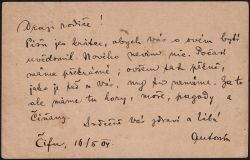 Drazí rodiče!
Píšu jen krátce, abych vás o svém bytí
uvědomil. Nového nevím nic. Počasí
máme překrásné; ovšem tak pěkné,
jako je teď u vás, my tu nemáme. Za to
ale máme tu hory, moře, pagody a
Číňany.
Srdečně vás zdraví a líbá
Čifu, 16/5 04 Antonín